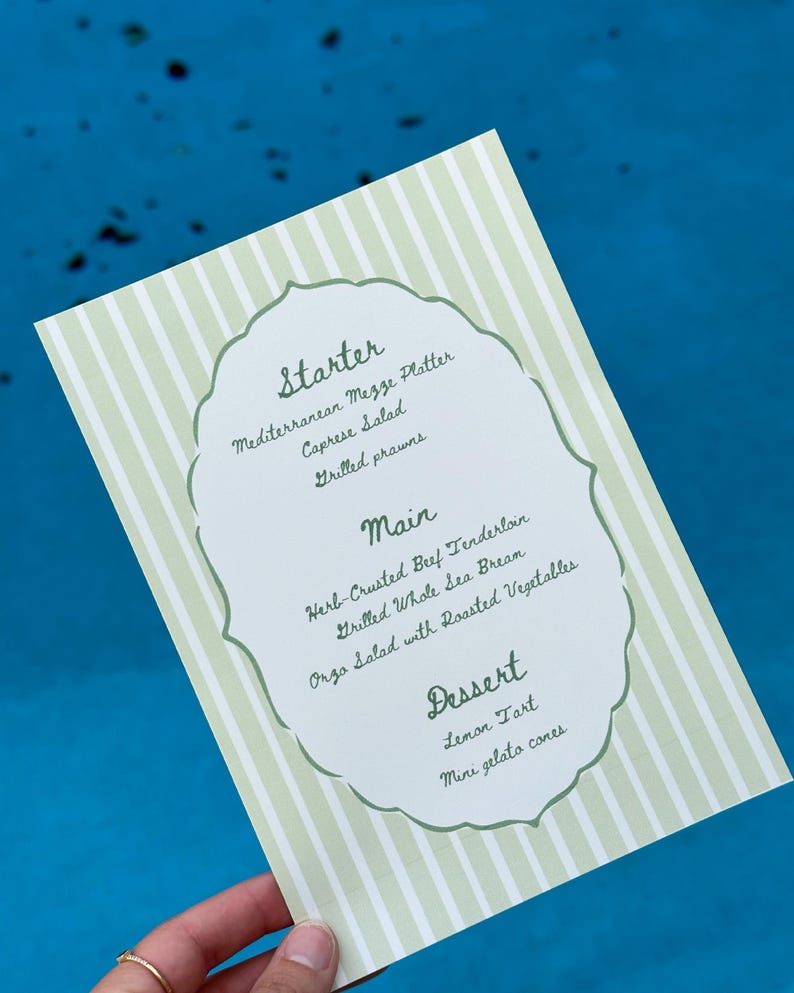 Starter
Mediterranean Mezze Platter
Caprese Salad
Grilled prawns
Main
Herb-Crusted Beef Tenderloin
Grilled Whole Sea Bream
Orzo Salad with Roasted Vegetables
Dessert
Lemon Tart
Mini gelato cones